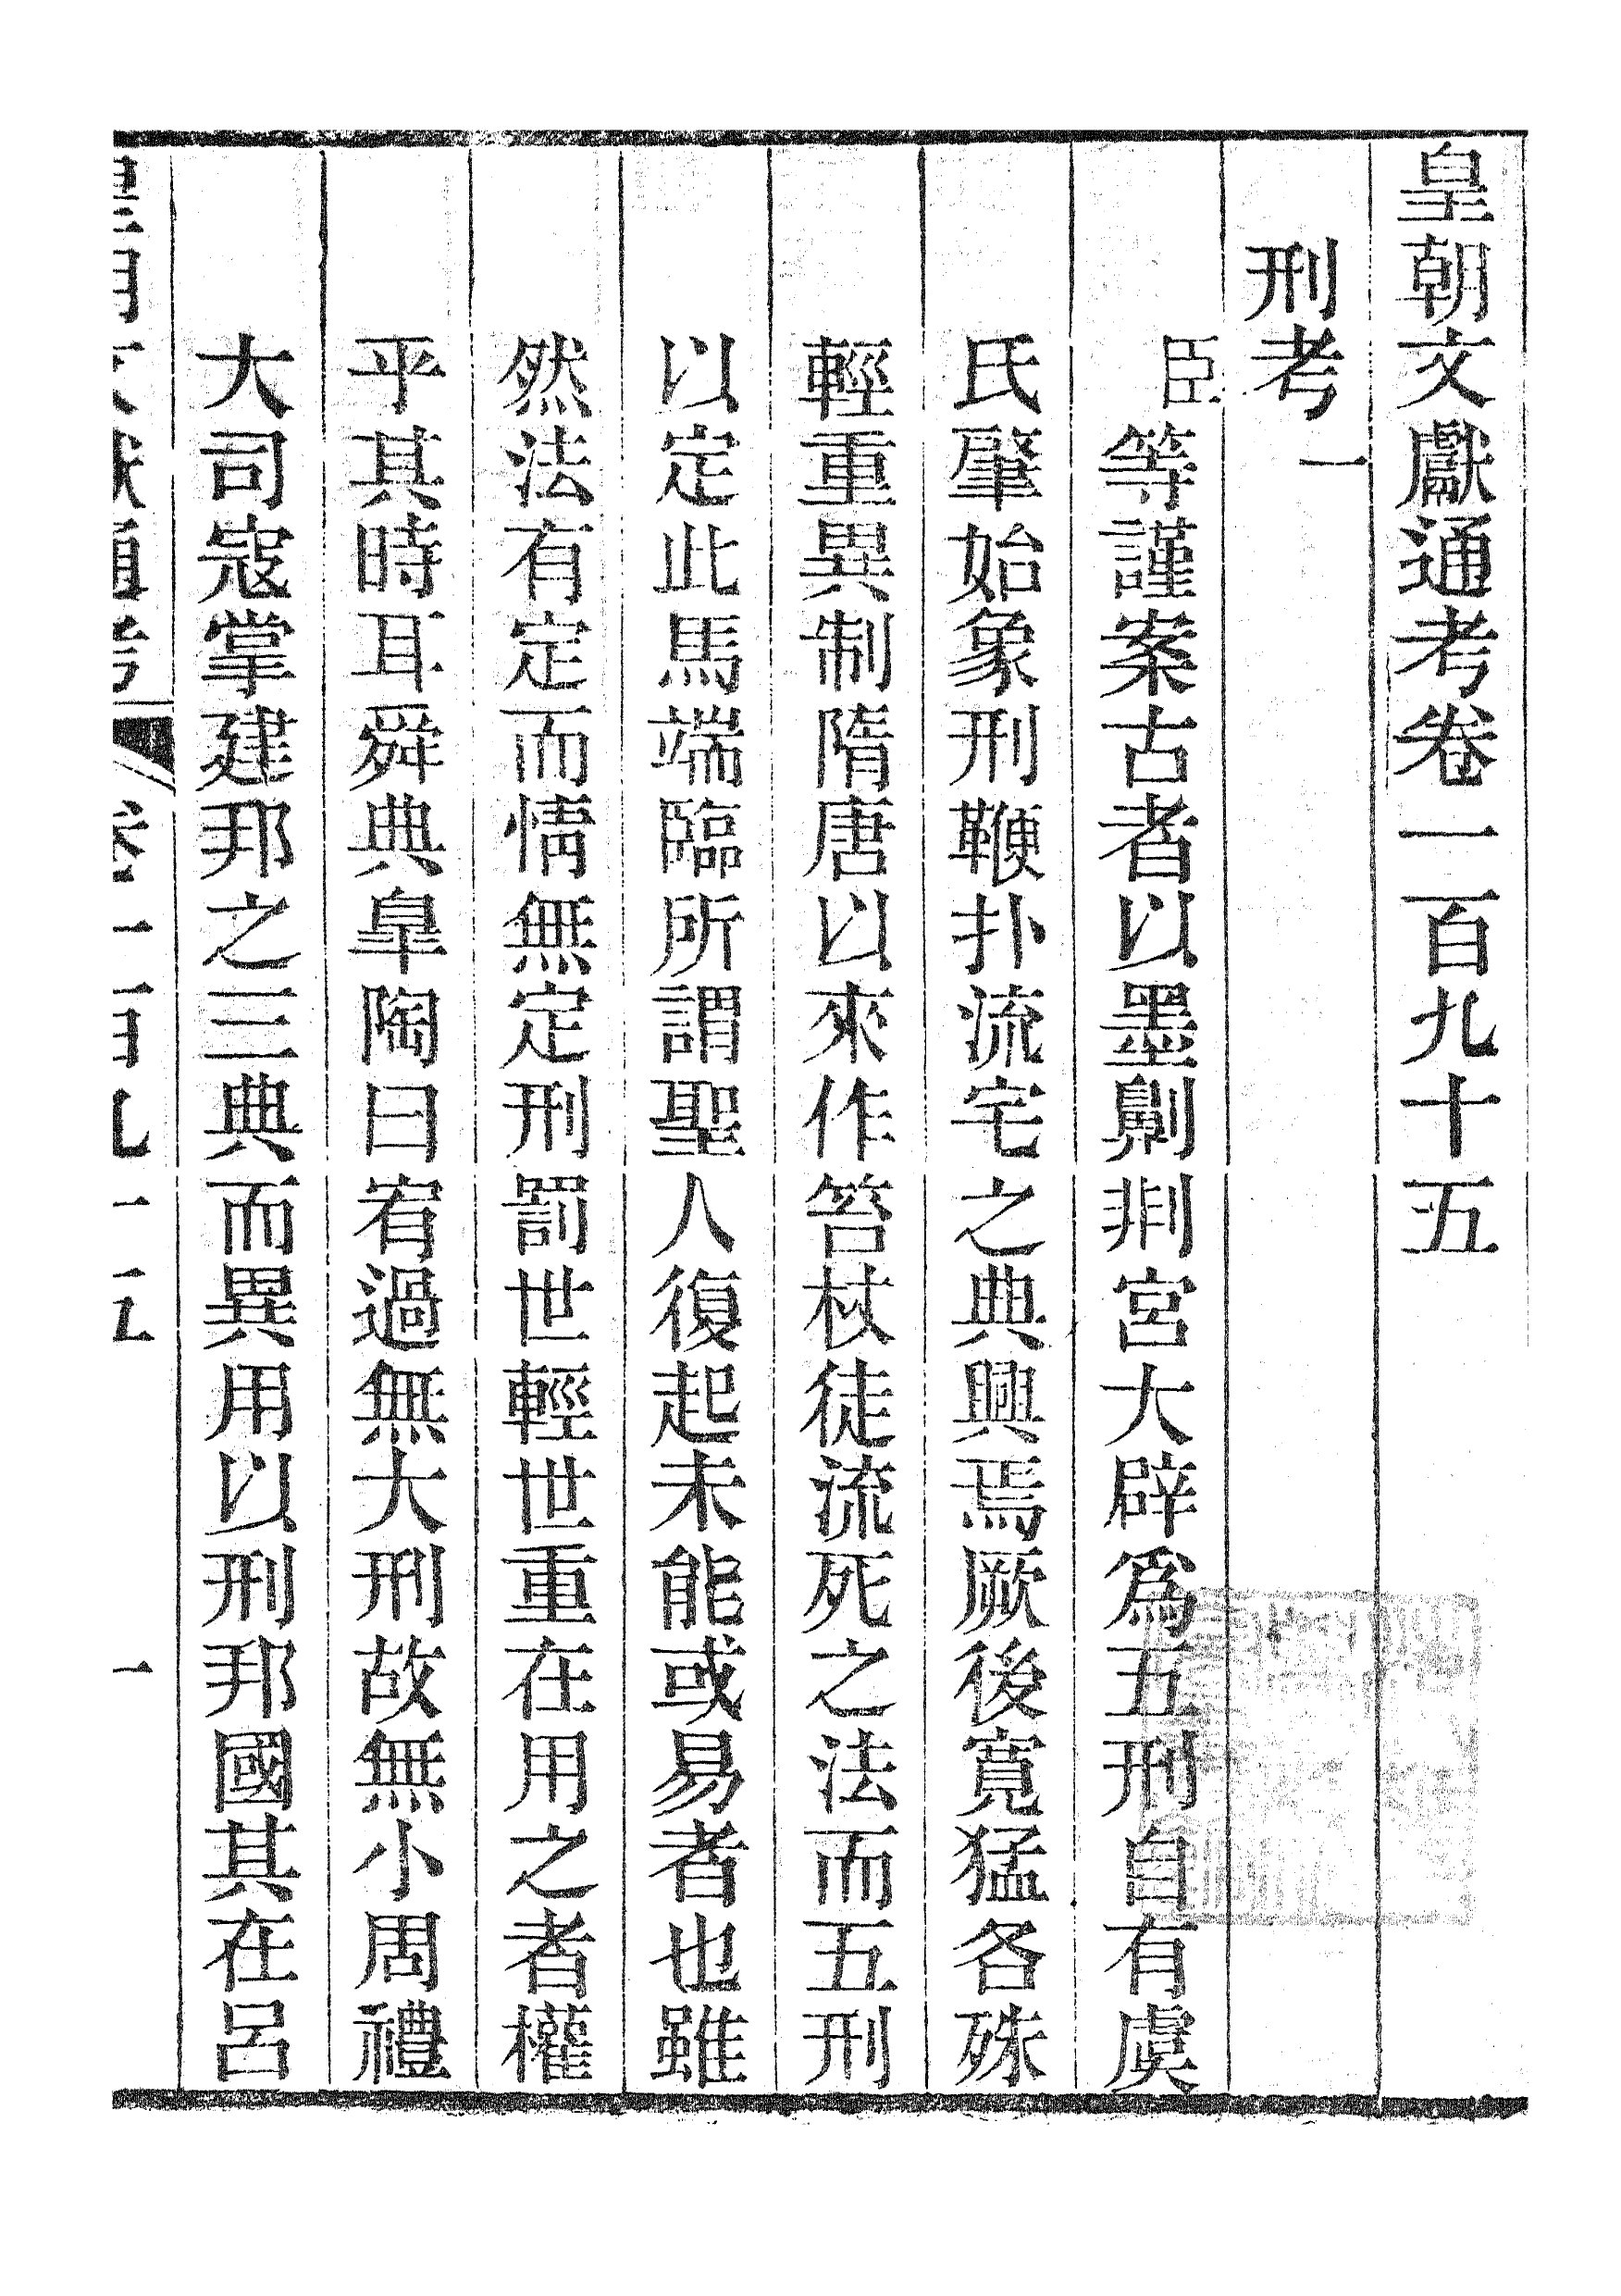 皇朝文獻通考卷一百九十五
刑考一
臣等謹案古者以墨劓剕宮大辟爲五刑自有虞
氏肇始象刑鞭扑流宅之典興焉厥後寬猛各殊
輕重異制隋唐以來作笞杖徒流死之法而五刑
以定此馬端臨所謂聖人復起未能或易者也雖
然法有定而情無定刑罰世輕世重在用之者權
乎其時耳舜典臯陶曰宥過無大刑故無小周禮
大司寇掌建邦之三典而異用以刑邦國其在呂
皇朝文獻通考 卷一百九十五 一